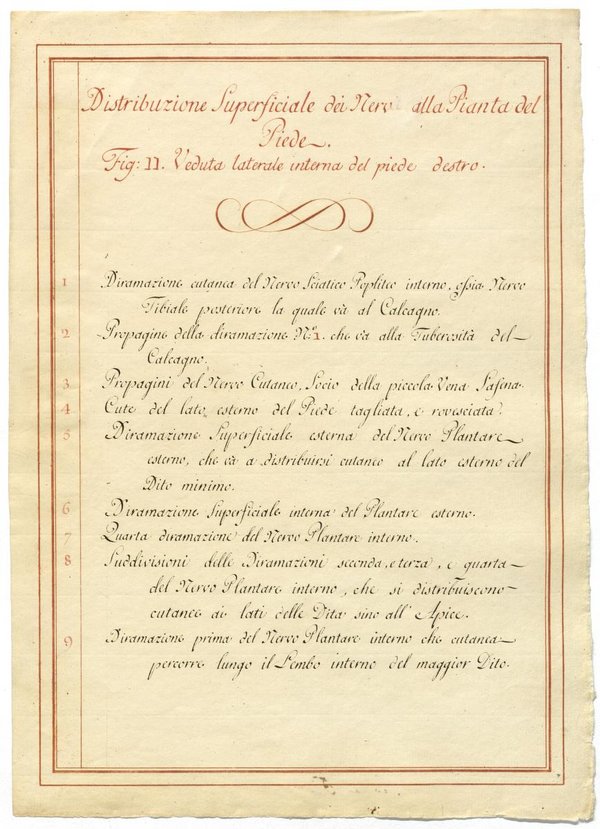 Distribuzione Superficiale dei Nervi alla Pianta del
Piede.
Fig: II. Veduta laterale interna del piede destro.
1 Diramazione cutanea del Nervo Sciatico Popliteo interno, ossia Nervo
Tibiale posteriore la quale và al Calcagno.
2 Propagine della diramazione N.º 1. che và alla Tuberosità del
Calcagno.
3 Propagini del Nervo Cutaneo, Socio della piccola Vena Safena.
4 Cute del lato esterno del Piede tagliata, e rovesciata.
5 Diramazione Superficiale esterna del Nervo Plantare
esterno, che và a distribuirsi cutaneo al lato esterno del
Dito minimo.
6 Diramazione Superficiale interna del Plantare esterno.
7 Quarta diramazione del Nervo Plantare interno.
8 Suddivisioni delle Diramazioni seconda, e terza, e quarta
del Nervo Plantare interno, che si distribuiscono
cutanee ai lati delle Dita sino all' Apice.
9 Diramazione prima del Nervo Plantare interno che cutanea
percorre lungo il Lembo interno del maggior Dito.